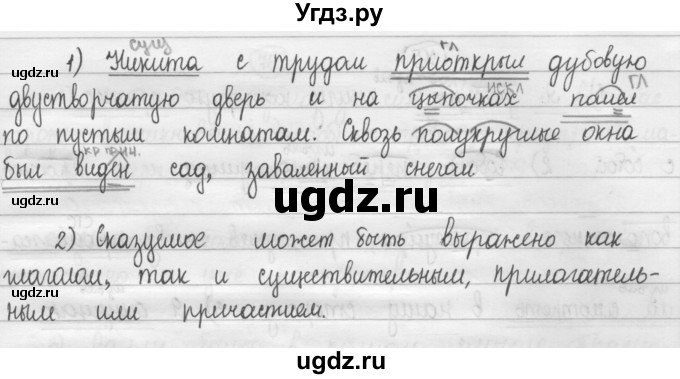 Угдз.ру
сущ гл
1) Никита с трудом приоткрыл дубовую
искл гл
двустворчатую дверь и на цыпочках пошел
по пустым комнатам. Сквозь полукруглые окна
кр. прич.
был виден сад, заваленный снегом
ugdz.ru
2) Сказуемое может быть выражено как
глаголом, так и существительным, прилагатель-
ным или причастием.
ugdz.ru
ugdz.ru
ugdz.ru
ugdz.ru
ugdz.ru
ugdz.ru
ugdz.ru